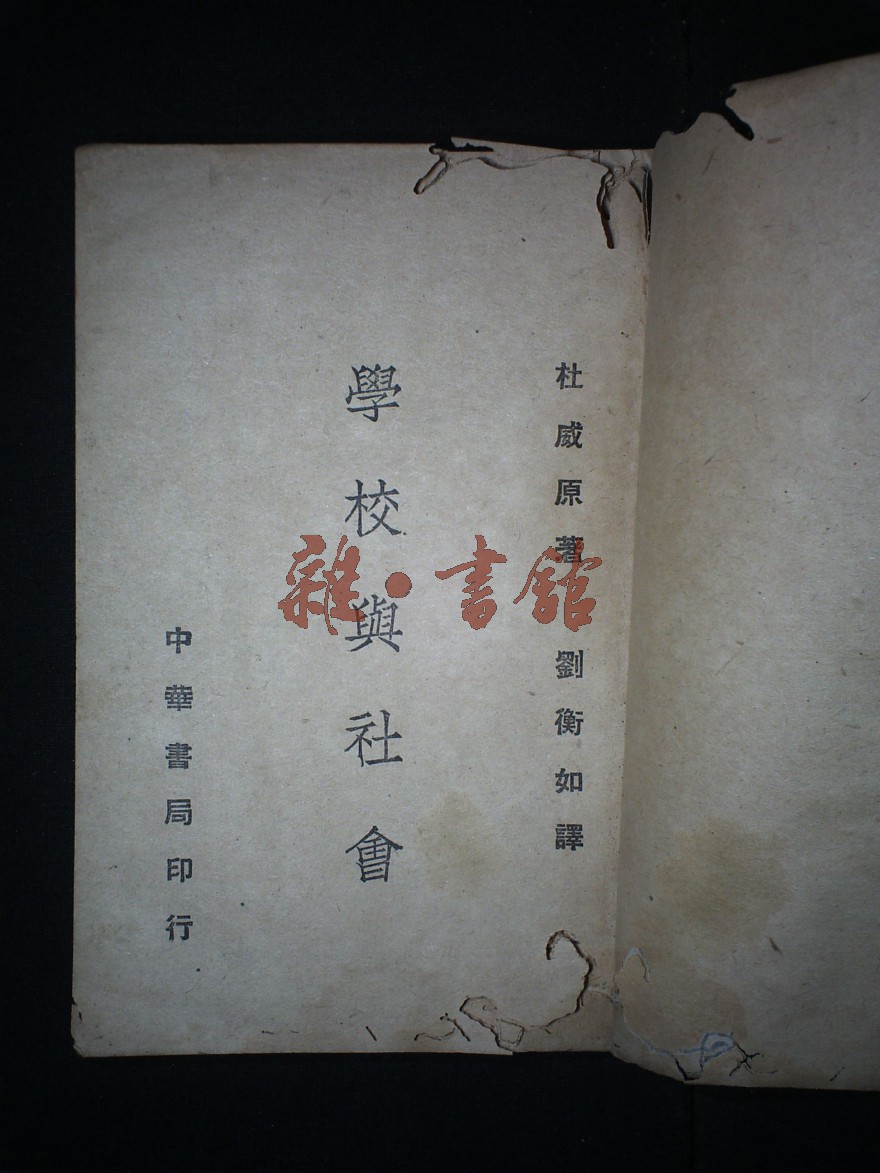 杜威原著 劉衡如譯
學校與社會
中華書局印行
雜·書館